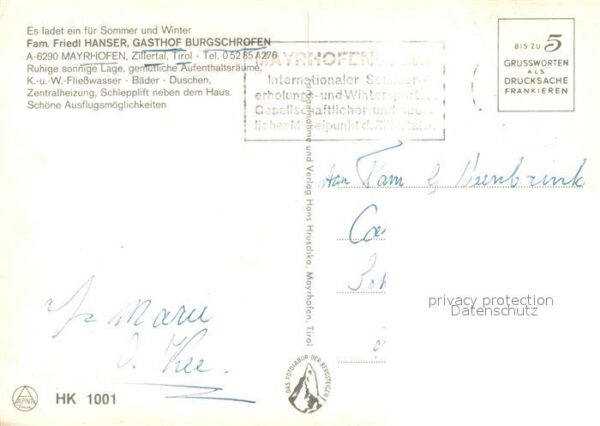 Es ladet ein für Sommer und Winter
Fam. Friedl HANSER, GASTHOF BURGSCHROFEN
A-6290 MAYRHOFEN, Zillertal, Tirol - Tel. 0 52 85 A276
Ruhige sonnige Lage, gemütliche Aufenthaltsräume,
K.-u.-W.-Fließwasser - Bäder - Duschen,
Zentralheizung, Schlepplift neben dem Haus.
Schöne Ausflugsmöglichkeiten
MAYRHOFEN
Internationaler
erholungs- und Wintersport
Gesellschaftlicher und
licher
BIS ZU 5
GRUSSWORTEN
ALS
DRUCKSACHE
FRANKIEREN
Aufnahme und Verlag Hans Hruschka, Mayrhofen, Tirol
Fam
Marie
privacy protection
Datenschutz
DAS FOTOLABOR DER BERGSTEIGER
HK 1001